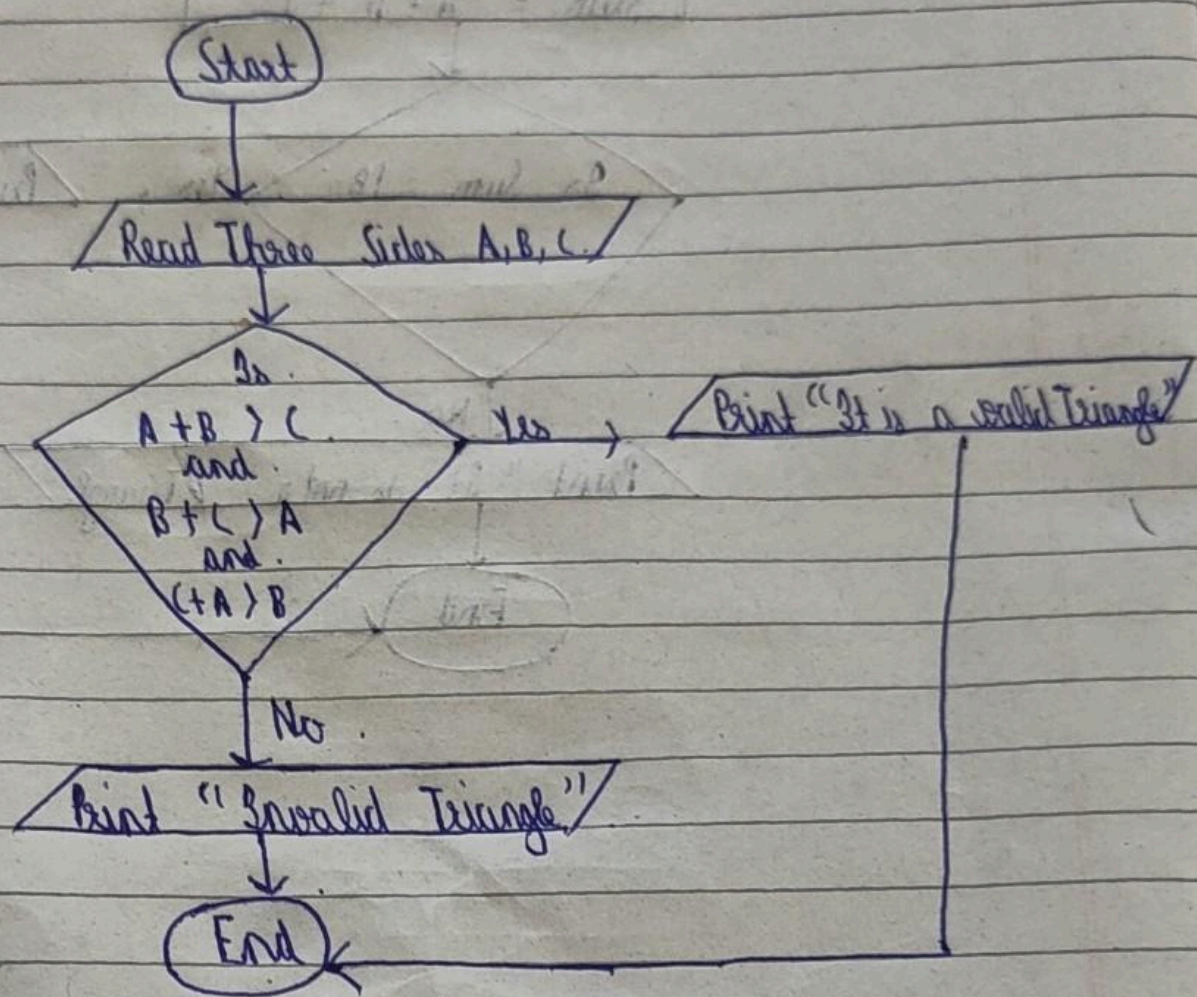 Start
Read Three Sides A, B, C.
Is.
A + B > C.
and.
B + C > A
and.
C + A > B
Yes
Print "It is a valid Triangle"
No.
Print "Invalid Triangle"
End